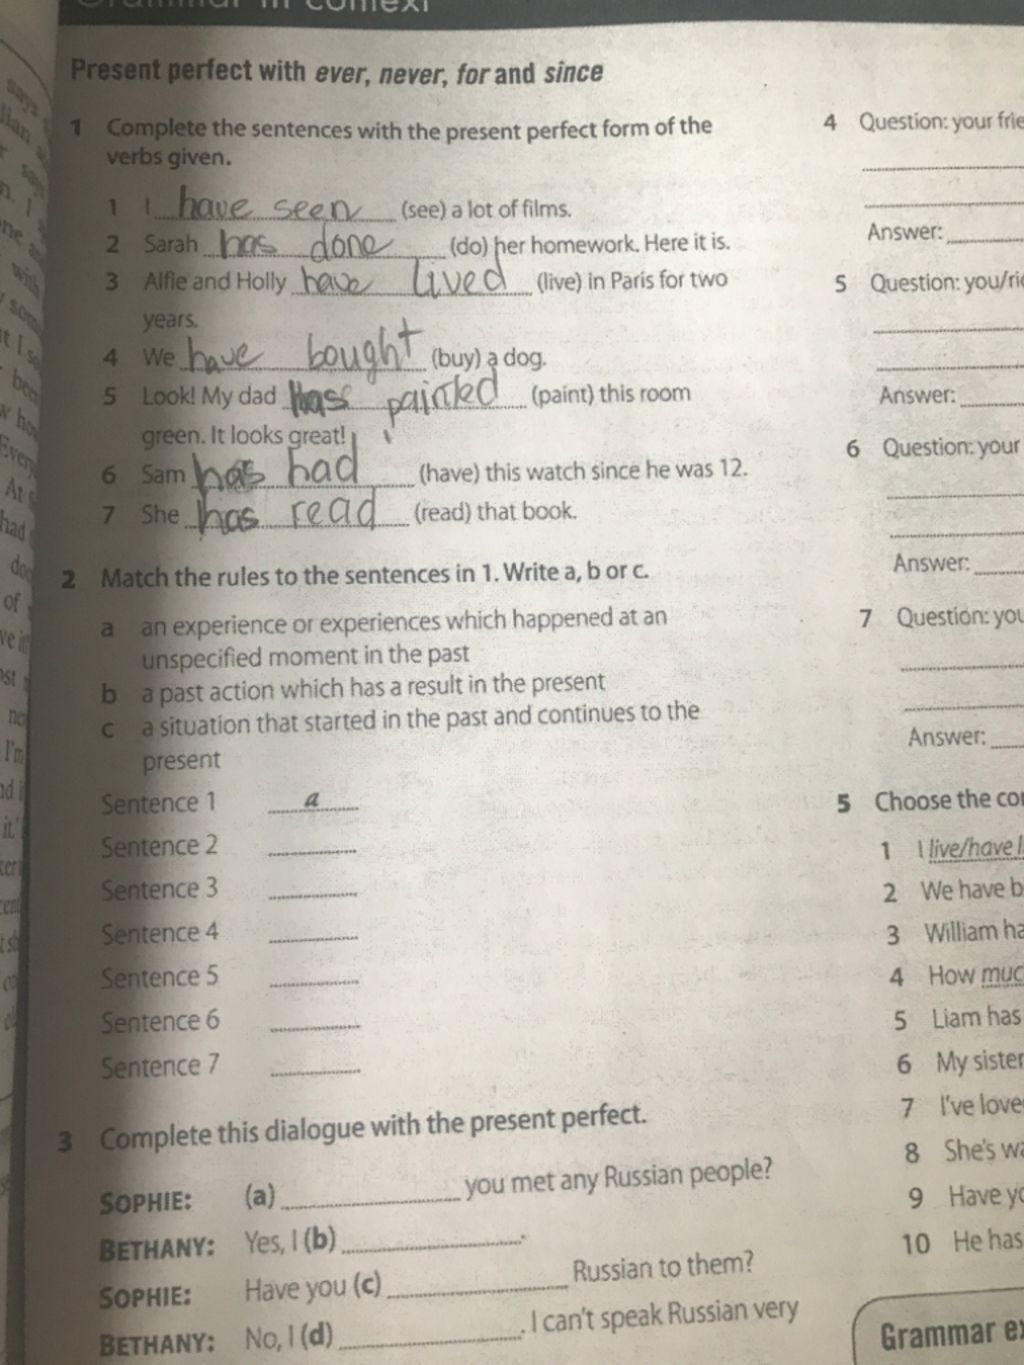 Grammar in context
Present perfect with ever, never, for and since
1 Complete the sentences with the present perfect form of the
verbs given.
1 I have seen (see) a lot of films.
2 Sarah has done (do) her homework. Here it is.
3 Alfie and Holly have lived (live) in Paris for two
years.
4 We have bought (buy) a dog.
5 Look! My dad Has painted (paint) this room
green. It looks great!
6 Sam has had (have) this watch since he was 12.
7 She has read (read) that book.
2 Match the rules to the sentences in 1. Write a, b or c.
a an experience or experiences which happened at an
unspecified moment in the past
b a past action which has a result in the present
c a situation that started in the past and continues to the
present
Sentence 1 a
Sentence 2
Sentence 3
Sentence 4
Sentence 5
Sentence 6
Sentence 7
3 Complete this dialogue with the present perfect.
SOPHIE: (a) you met any Russian people?
BETHANY: Yes, I (b) .
SOPHIE: Have you (c) Russian to them?
BETHANY: No, I (d) . I can't speak Russian very
4 Question: your frie
Answer:
5 Question: you/ri
Answer:
6 Question: your
Answer:
7 Question: you
Answer:
5 Choose the cor
1 I live/have l
2 We have b
3 William ha
4 How muc
5 Liam has
6 My sister
7 I've love
8 She's wa
9 Have yo
10 He has
Grammar ex